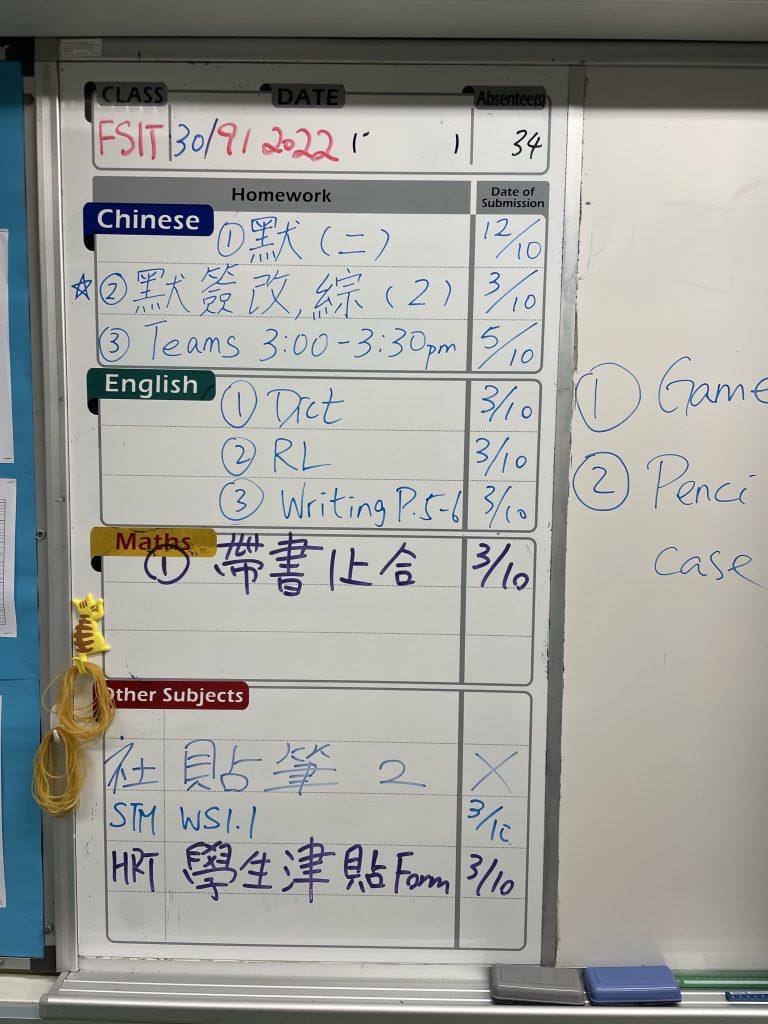 CLASS DATE Absentee(s)
FSIT 30/9/2022 34
Homework Date of Submission
Chinese
① 默(二) 12/10
☆② 默簽改,綜(2) 3/10
③ Teams 3:00-3:30pm 5/10
English
① Dict 3/10
② RL 3/10
③ Writing P.5-6 3/10
Maths
① 帶書上合 3/10
Other Subjects
社 貼筆 2 X
STM WS1.1 3/10
HRT 學生津貼 Form 3/10
① Game
② Penci
case